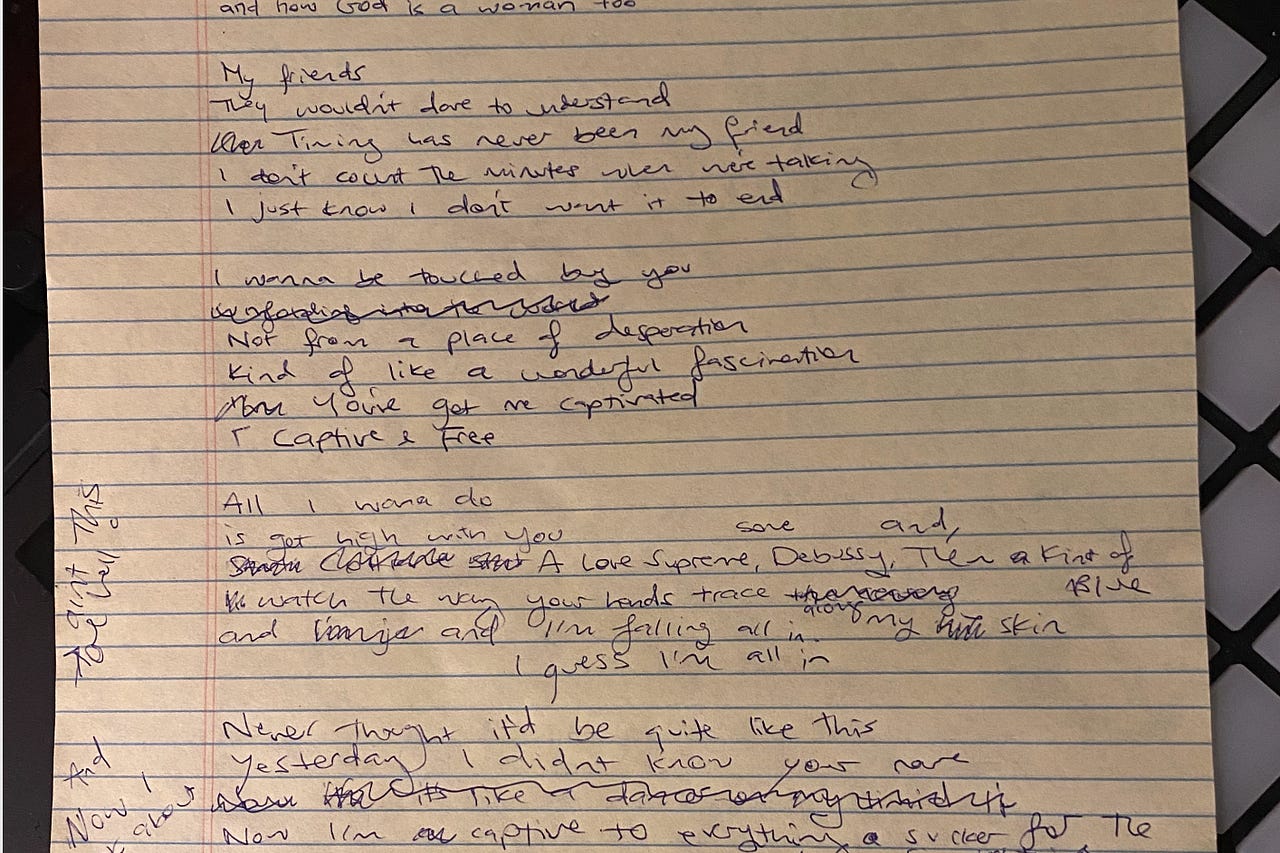 and how God is a woman too
My friends
They wouldn't dare to understand
Timing has never been my friend
I don't count The minutes when we're talking
I just know I don't want it to end
I wanna be touched by you
Not from a place of desperation
Kind of like a wonderful fascination
You've got me captivated
Captive & Free
All I wana do
is get high with you
some and,
A Love Supreme, Debussy, Then a Kind of
Blue
watch the way your hands trace
along my skin
and I'm falling all in.
I guess I'm all in
Never thought it'd be quite like this
Yesterday I didn't know your name
like a
Now I'm captive to everything a sucker for The
This
And
Now I